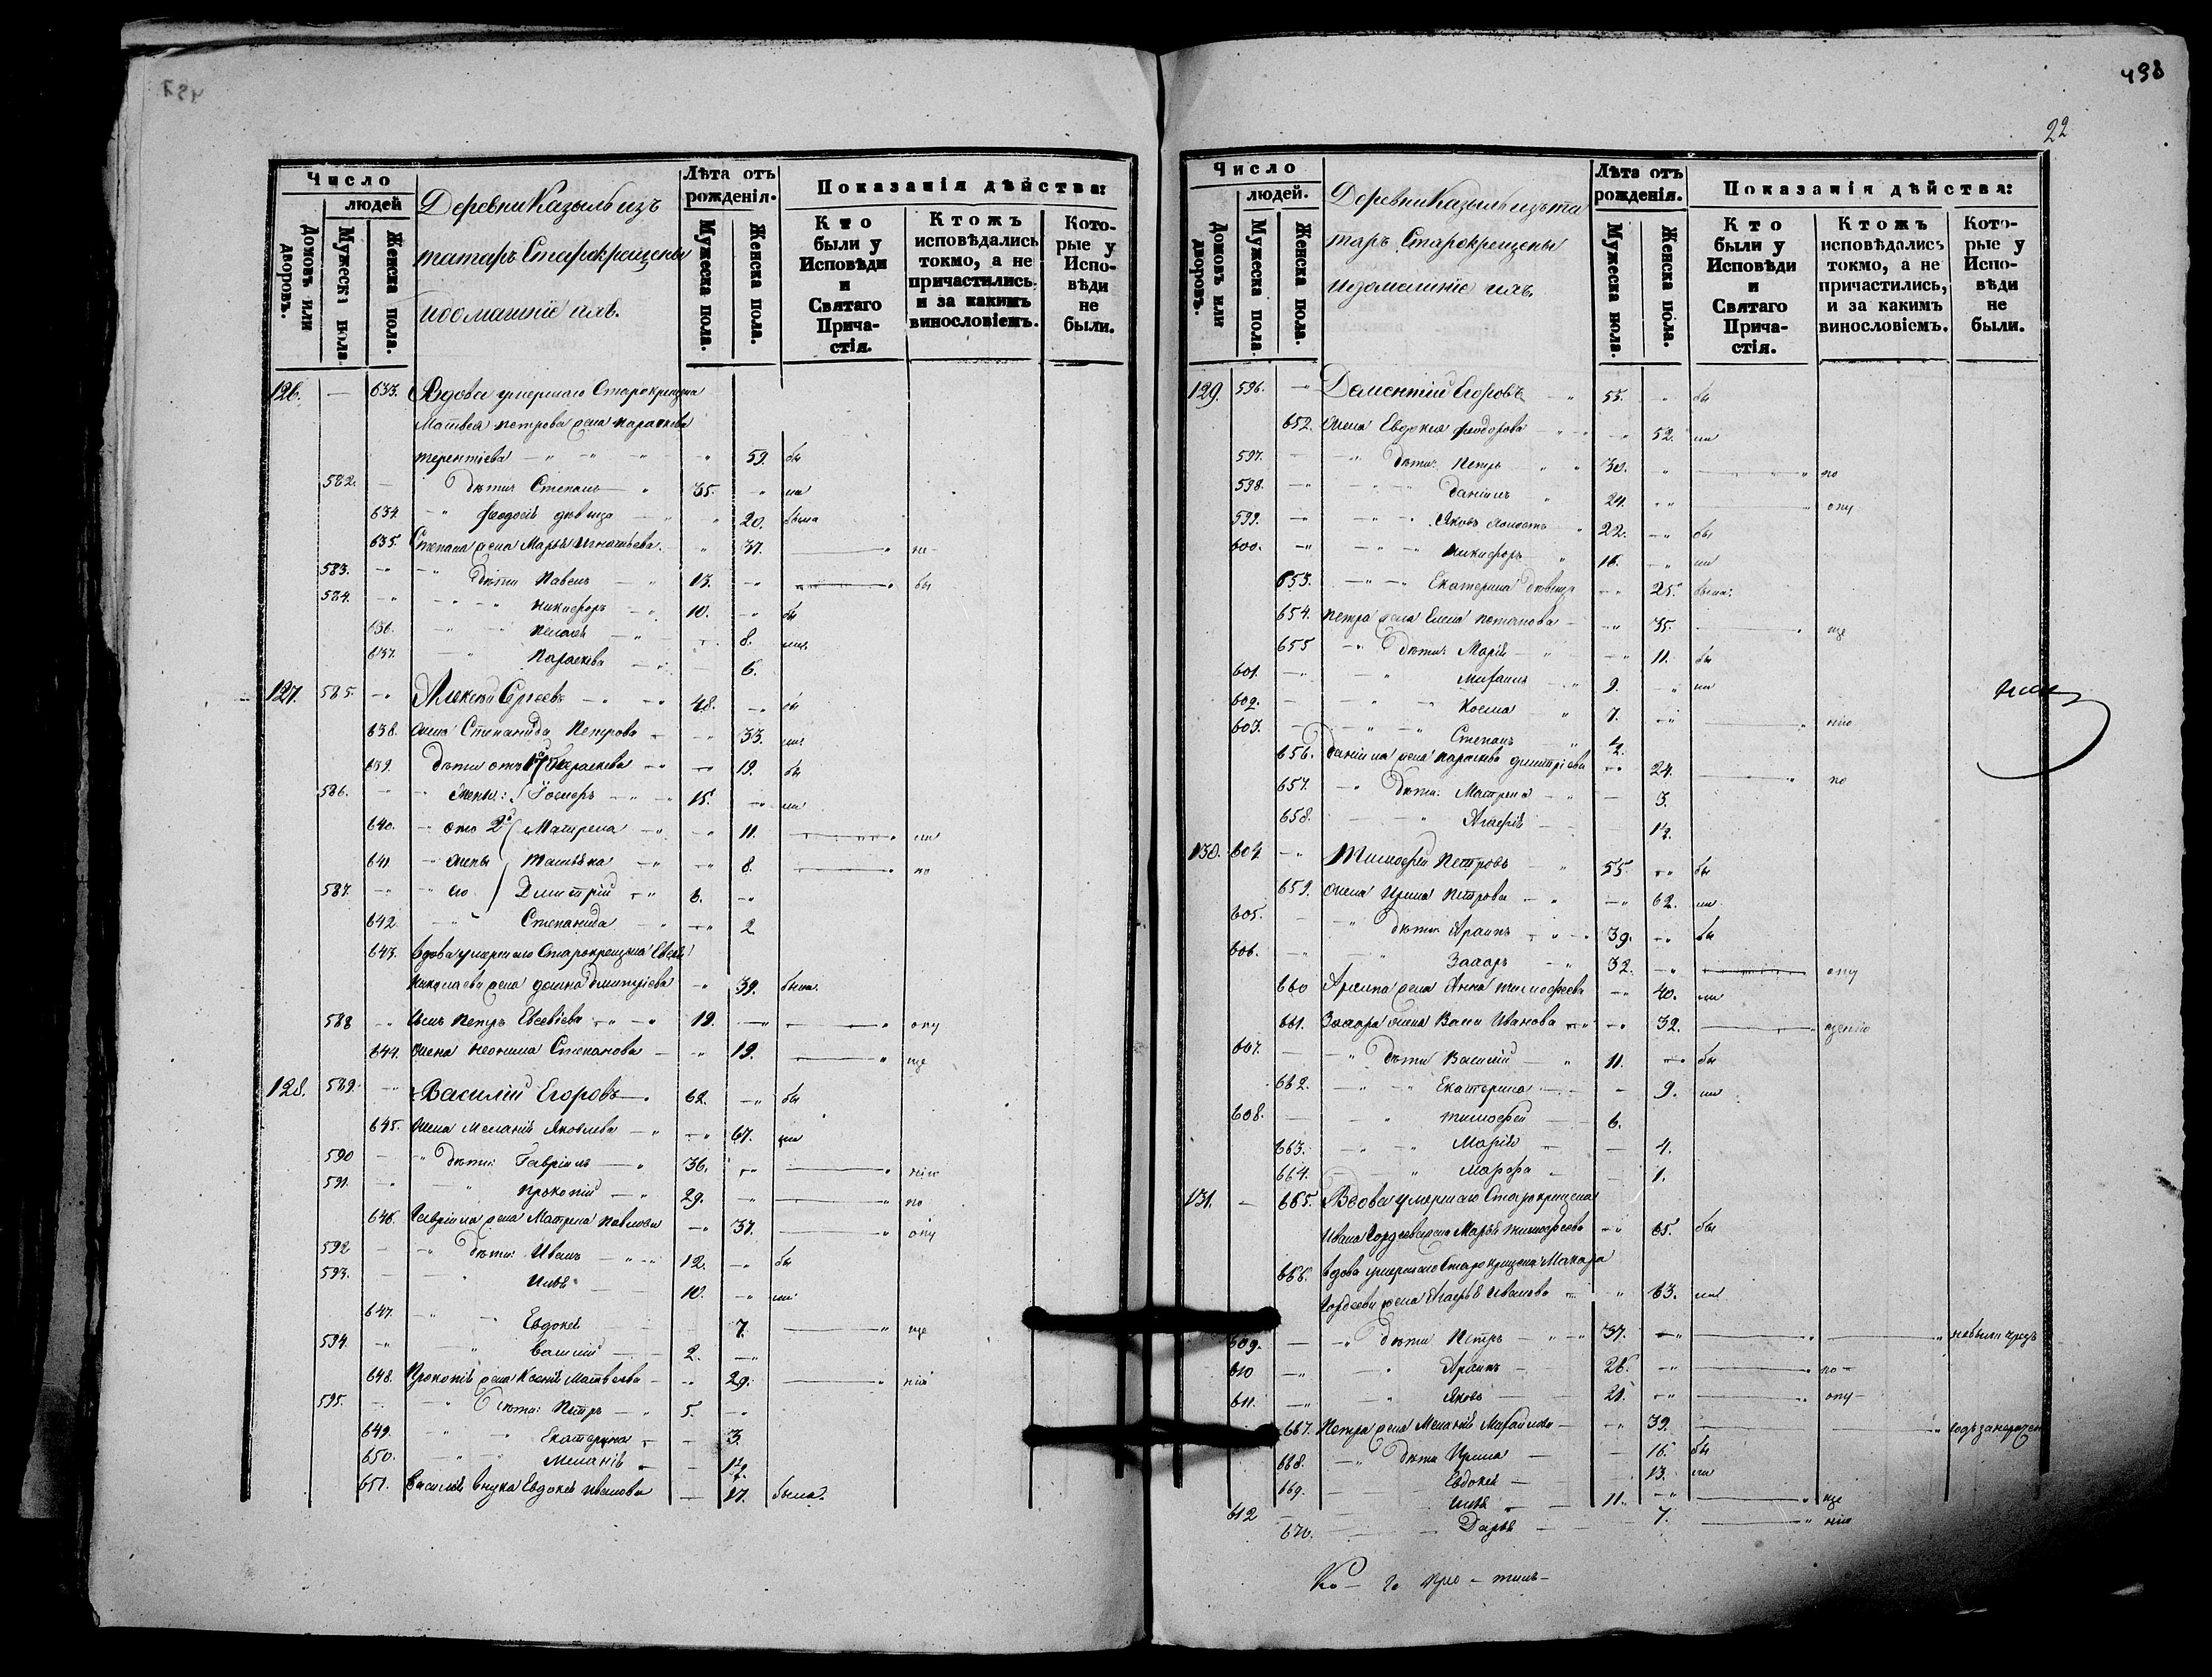 498
22
Число
людей
Домовъ или дворовъ.
Мужеска пола.
Женска пола.
Деревни Казыли изъ
татаръ Старокрещены
и домашніе ихъ.
Лѣта отъ рожденія.
Мужеска пола.
Женска пола.
Показанія дѣйства:
Кто были у Исповѣди и Святаго Причастія.
Ктожъ исповѣдались токмо, а не причастились, и за какимъ винословіемъ.
Которые у Исповѣди не были.
126. — 633. Вдова умершаго Старокрещена
Матвея Петрова жена Параскева
Терентіева — " — " 59. бы
582. — Дѣти: Степанъ — " 35. — " ли
634. — " Феодосія дѣвица — " 20. была
635. Степана жена Марья Игнатьева. " 37. — " не
583. — " — " Дѣти Павелъ — " 13. — " — " бы
584. — " — " Никифоръ — " 10. — " бы
636. — " Пелагея — " 8. ли
637. — " Параскева — " 6.
127. 585. — " Алексѣй Сергеевъ — " 48. — " бы
638. Жена Степанида Петрова — " 33. ли
639. Дѣти отъ 1й Параскева — " 19. бы
586. — " жены: Госифъ — " 15. — " ли
640. — отъ 2й Матрена — " 11. — " ли
641. — " жены Татьяна — " 8. — " по
587. — " его Дмитрій — " 6. — "
642. — " Степанида — " 2
643. Вдова умершаго Старокрещена Евсевія
Николаева жена Домна Дмитріева — " 39. была.
588 — " Сынъ Петръ Евсевіевъ — " 19. — " — " опу
644. Жена Неонила Степанова — " 19. — " ще
128. 589. — " Василій Егоровъ — . 62. — " бы
645. Жена Меланія Яковлева — " 67. ли
590 — " Дѣти: Гавріилъ — " 36. — " — " нію
591. — " Прокопій — " 29. — " — " по
646. Гавріила жена Матрена Павлова — " 37. — " опу
592 — " Дѣти: Иванъ — " 12. — " бы
593. — " Илья — 10. — " ли
647. — " Евдокія 7. — " ще
594. — " Василій — 2. — "
648. Прокопія жена Ксенія Матвеева — " 29. — " нію
595. — " Дѣти: Петръ — " 5. — "
649. — " Екатерина — 3.
650. — " Меланія — 1/2.
651. Василія внука Евдокія Иванова — 17. была.
Число
людей.
Домовъ или дворовъ.
Мужеска пола.
Женска пола.
Деревни Казыли изъ та
таръ Старокрещены
и домашніе ихъ.
Лѣта отъ рожденія.
Мужеска пола.
Женска пола.
Показанія дѣйства:
Кто были у Исповѣди и Святаго Причастія.
Ктожъ исповѣдались токмо, а не причастились, и за какимъ винословіемъ.
Которые у Исповѣди не были.
129. 596. — " Дементій Егоровъ — " 55. — " бы
652. Жена Евдокия Феодорова — " 52. ли
597. — " Дѣти: Петръ — " 30. — " — " по
598. — " Даніилъ " 24. — " — " опу
599. — " Яковъ холостъ " 22. — " бы
600. — " Никифоръ " 16. — " ли
653. — " Екатерина дѣвица — " 25. была.
654. Петра жена Елена Потапова — " 35. — " ще
655 — " Дѣти: Марія — " 11. бы
601. — " Михаилъ — " 9. — " ли
602. — " Косма " 7. — " — " нію
603. — " Степанъ " 1/2.
656. Даніила жена Параскева Димитріева — " 24. — " по
657. — " Дѣти: Матрена — " 3.
658. — " Агафія 1/2.
130. 604. — " Тимофей Петровъ — " 55. — " бы
659. Жена Ирина Петрова — " 62. ли
605. — " Дѣти Архипъ — " 39. — " бы
606. — " Захаръ — " 32. — " — " опу
660 Архипа жена Анна Тимофеева — " 40. ли
661. Захара жена Васа Иванова — " 32. — " щенію
607. — " Дѣти Василій — " 11. — " бы
662. — " Екатерина — 9. ли
608. — " Тимофей — 6.
663. — " Марія — 4.
664. — " Марфа — 1.
131. — 665. Вдова умершаго Старокрещена
Ивана Гордеева жена Марья Тимофеева — " 65. бы
666. Вдова умершаго Старокрещена Макара
Гордеева жена Агафья Иванова — " 63. ли
609. — " Дѣти Петръ — " 37. — " — " — " не были чрезъ
610 — " Архипъ — 26. — " — " по —
611. — " Яковъ — 21. — " — " опу —
667. Петра жена Меланія Михайлова — " 39. — " годъ за нерачен
668. — " Дѣти Ирина — 16. бы
669. — Евдокия — 13. ли
612 — Илья — 11. — " — " ще
670. — Дарья — 7. — " нію